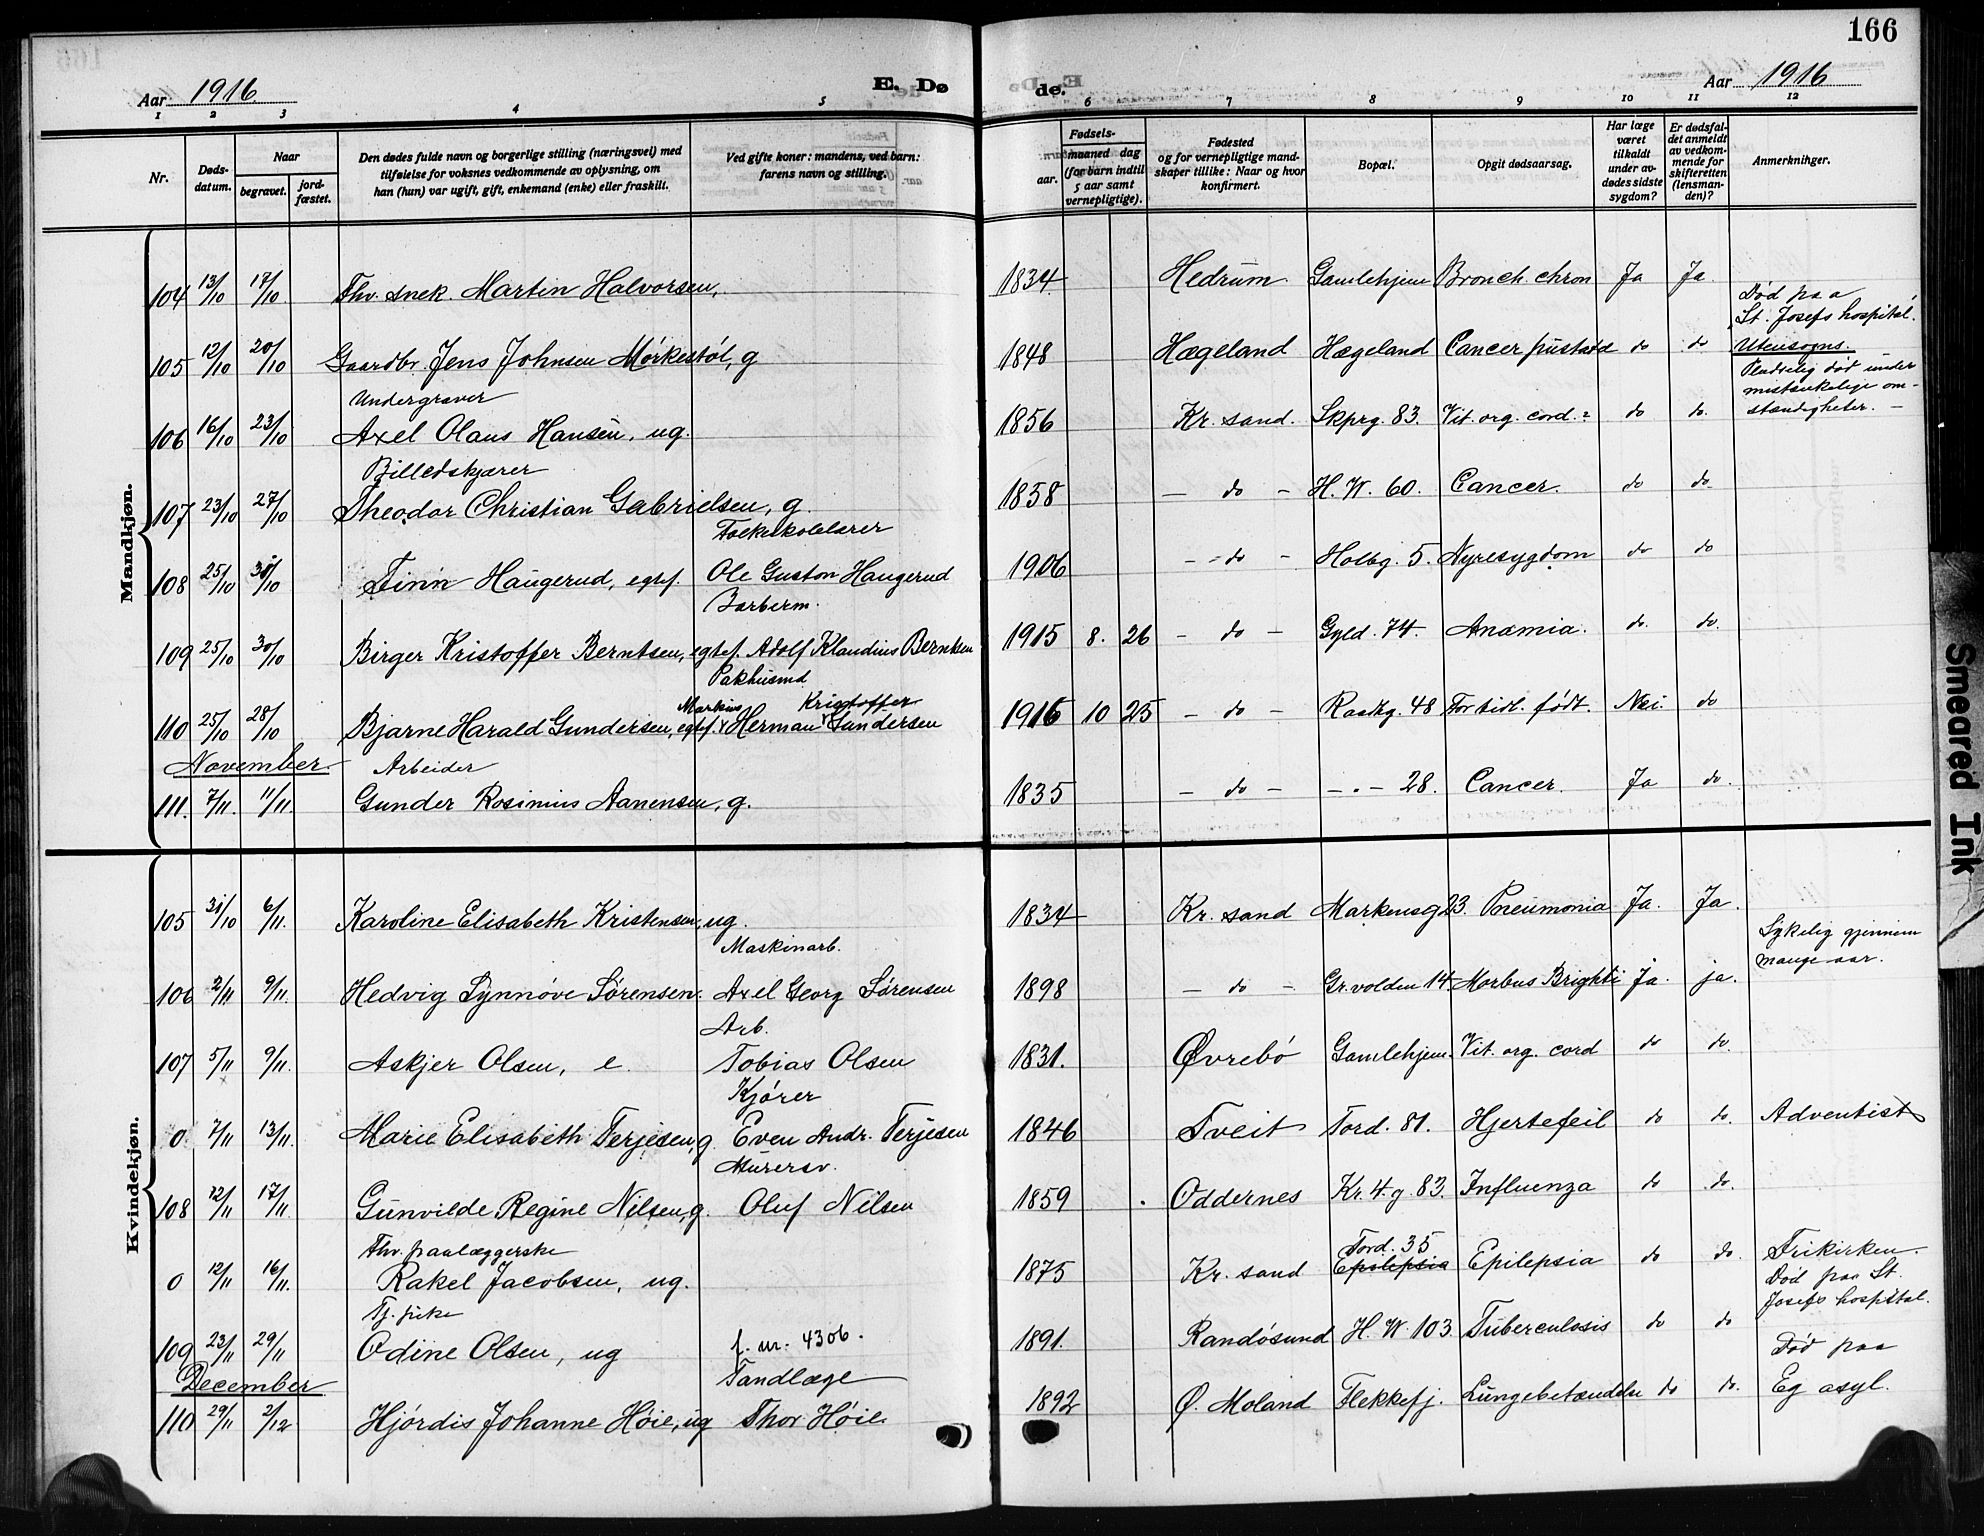 166
Aar 1916.
E. Dø
de.
Aar 1916
1 2 3 4 5 6 7 8 9 10 11 12
Nr.
Døds-
datum.
Naar
begravet.
jord-
fæstet.
Den dødes fulde navn og borgerlige stilling (næringsvei) med
tilføielse for voksnes vedkommende av oplysning, om
han (hun) var ugift, gift, enkemand (enke) eller fraskilt.
Ved gifte koner: mandens, ved barn:
farens navn og stilling.
Fødsels-
aar.
maaned dag
(for barn indtil
5 aar samt
vernepligtige).
Fødested
og for vernepligtige mand-
skaper tillike: Naar og hvor
konfirmert.
Bopæl.
Opgit dødsaarsag.
Har læge
været
tilkaldt
under av-
dødes sidste
sygdom?
Er dødsfal-
det anmeldt
av vedkom-
mende for
skifteretten
(lensman-
den)?
Anmerkninger.
Mandkjøn.
104 13/10 17/10 Thv. snek. Martin Halvorsen, 1834 Hedrum. Gamlehjem Bronch. chron Ja Ja.
Død paa
St. Josefs hospital.
105 12/10 20/10 Gaardbr. Jens Johnsen Mørkestøl, g 1848 Hægeland Hægeland Cancer do do Utensogns.
Pludselig død under
mistænkelige om-
stændigheter. —
Undergraver
106 16/10 23/10 Axel Olaus Hansen, ug. 1856 Kr. sand. Skprg. 83. Vit. org. cord. do do.
Billedskjærer
107 23/10 27/10 Theodor Christian Gabrielsen, g. 1858 — do — H. W. 60. Cancer. do do
Folkeskolelærer
108 25/10 30/10 Finn Haugerud, egtef. Ole Gustav Haugerud 1906 — do — Holbg. 5. Nyresygdom do do
Barberm.
109 25/10 30/10 Birger Kristoffer Berntsen, egtef. Adolf Klaudius Berntsen 1915 8. 26 — do — Gyld. 74. Anæmia. do. do.
Pakhusmd
Markus Kristoffer
110 25/10 28/10 Bjarne Harald Gundersen, egtef. Herman Gundersen 1916 10 25 — do — Raadhg. 48 For tidl. født. Nei. do
November
Arbeider
111. 7/11. 11/11. Gunder Rosinius Aanensen, g. 1835 — do — — " — 28. Cancer. Ja do.
Kvindekjøn.
105 31/10 6/11. Karoline Elisabeth Kristensen, ug. 1834 Kr. sand Markensg 23. Pneumonia Ja. Ja.
Maskinarb.
Sykelig gjennem
mange aar.
106 2/11 9/11. Hedvig Synnøve Sørensen. Axel Georg Sørensen 1898 — do — Gr. volden 14. Morbus Brighti Ja. ja.
Arb.
107 5/11 9/11. Askjer Olsen, e. Tobias Olsen 1831. Øvrebø Gamlehjem. Vit. org. cord do do.
Kjører
0. 7/11 13/11. Marie Elisabeth Terjesen, g. Even Andr. Terjesen 1846 Tveit Tord. 81. Hjertefeil do do. Adventist
Murersv.
108 12/11 17/11 Gunvilde Regine Nilsen, g. Oluf Nilsen 1859 Oddernes Kr. 4. g. 83. Influenza do do.
Thv. paalæggerske
0 12/11 16/11. Rakel Jacobsen, ug. 1875 Kr. sand Tord. 35 Epilepsia Epilepsia do do. Frikirken.
Død paa St.
Josefs hospital.
Tj. pike
109 23/11 29/11 Odine Olsen, ug f. nr. 4306. 1891. Randøsund H. W. 103 Tuberculosis do do
December
Tandlæge
Død paa
Eg asyl.
110 29/11 2/12 Hjørdis Johanne Høie, ug Thor Høie. 1892 Ø. Moland Flekkefj. Lungebetændelse do do.
Smeared Ink